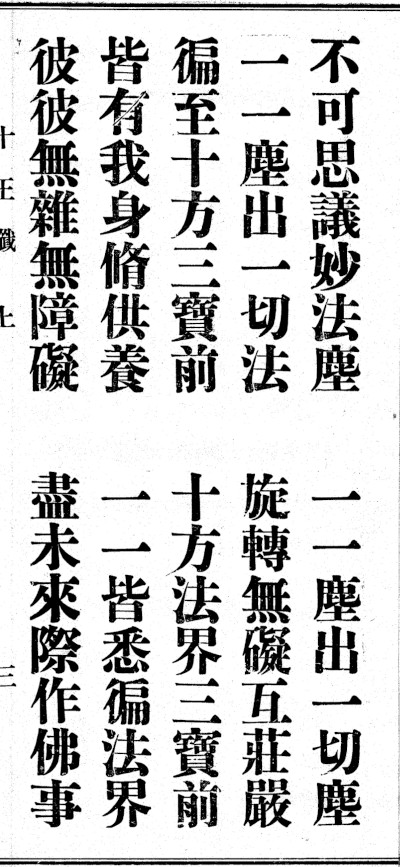 不可思議妙法塵　一一塵出一切塵
一一塵出一切法　旋轉無礙互莊嚴
徧至十方三寶前　十方法界三寶前
皆有我身脩供養　一一皆悉徧法界
彼彼無雜無障礙　盡未來際作佛事
十王懺上　三